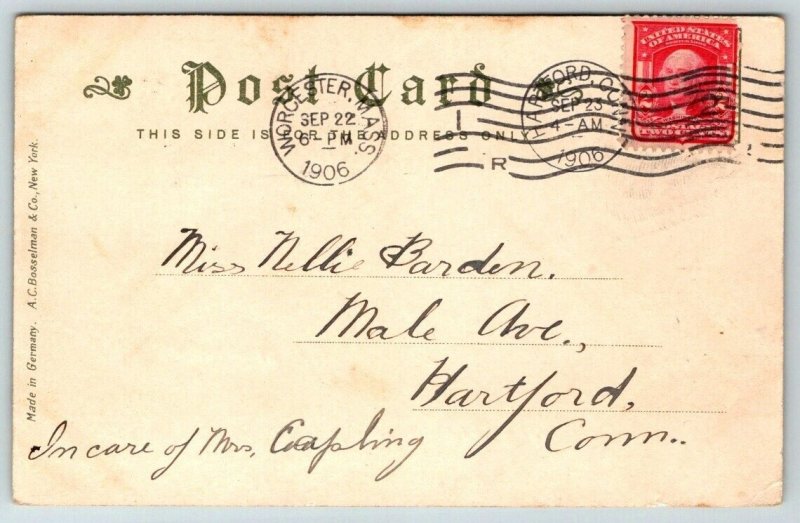 Post Card
THIS SIDE IS FOR THE ADDRESS ONLY
WORCESTER, MASS.
SEP 22
6 - PM
1906
HARTFORD, CONN.
SEP 23
4 - AM
1906
R
UNITED STATES
OF AMERICA
2
TWO
Miss Nellie Barden.
Male Ave.,
Hartford,
Conn.
In care of Mrs.
Made in Germany. A.C. Bosselman & Co., New York.